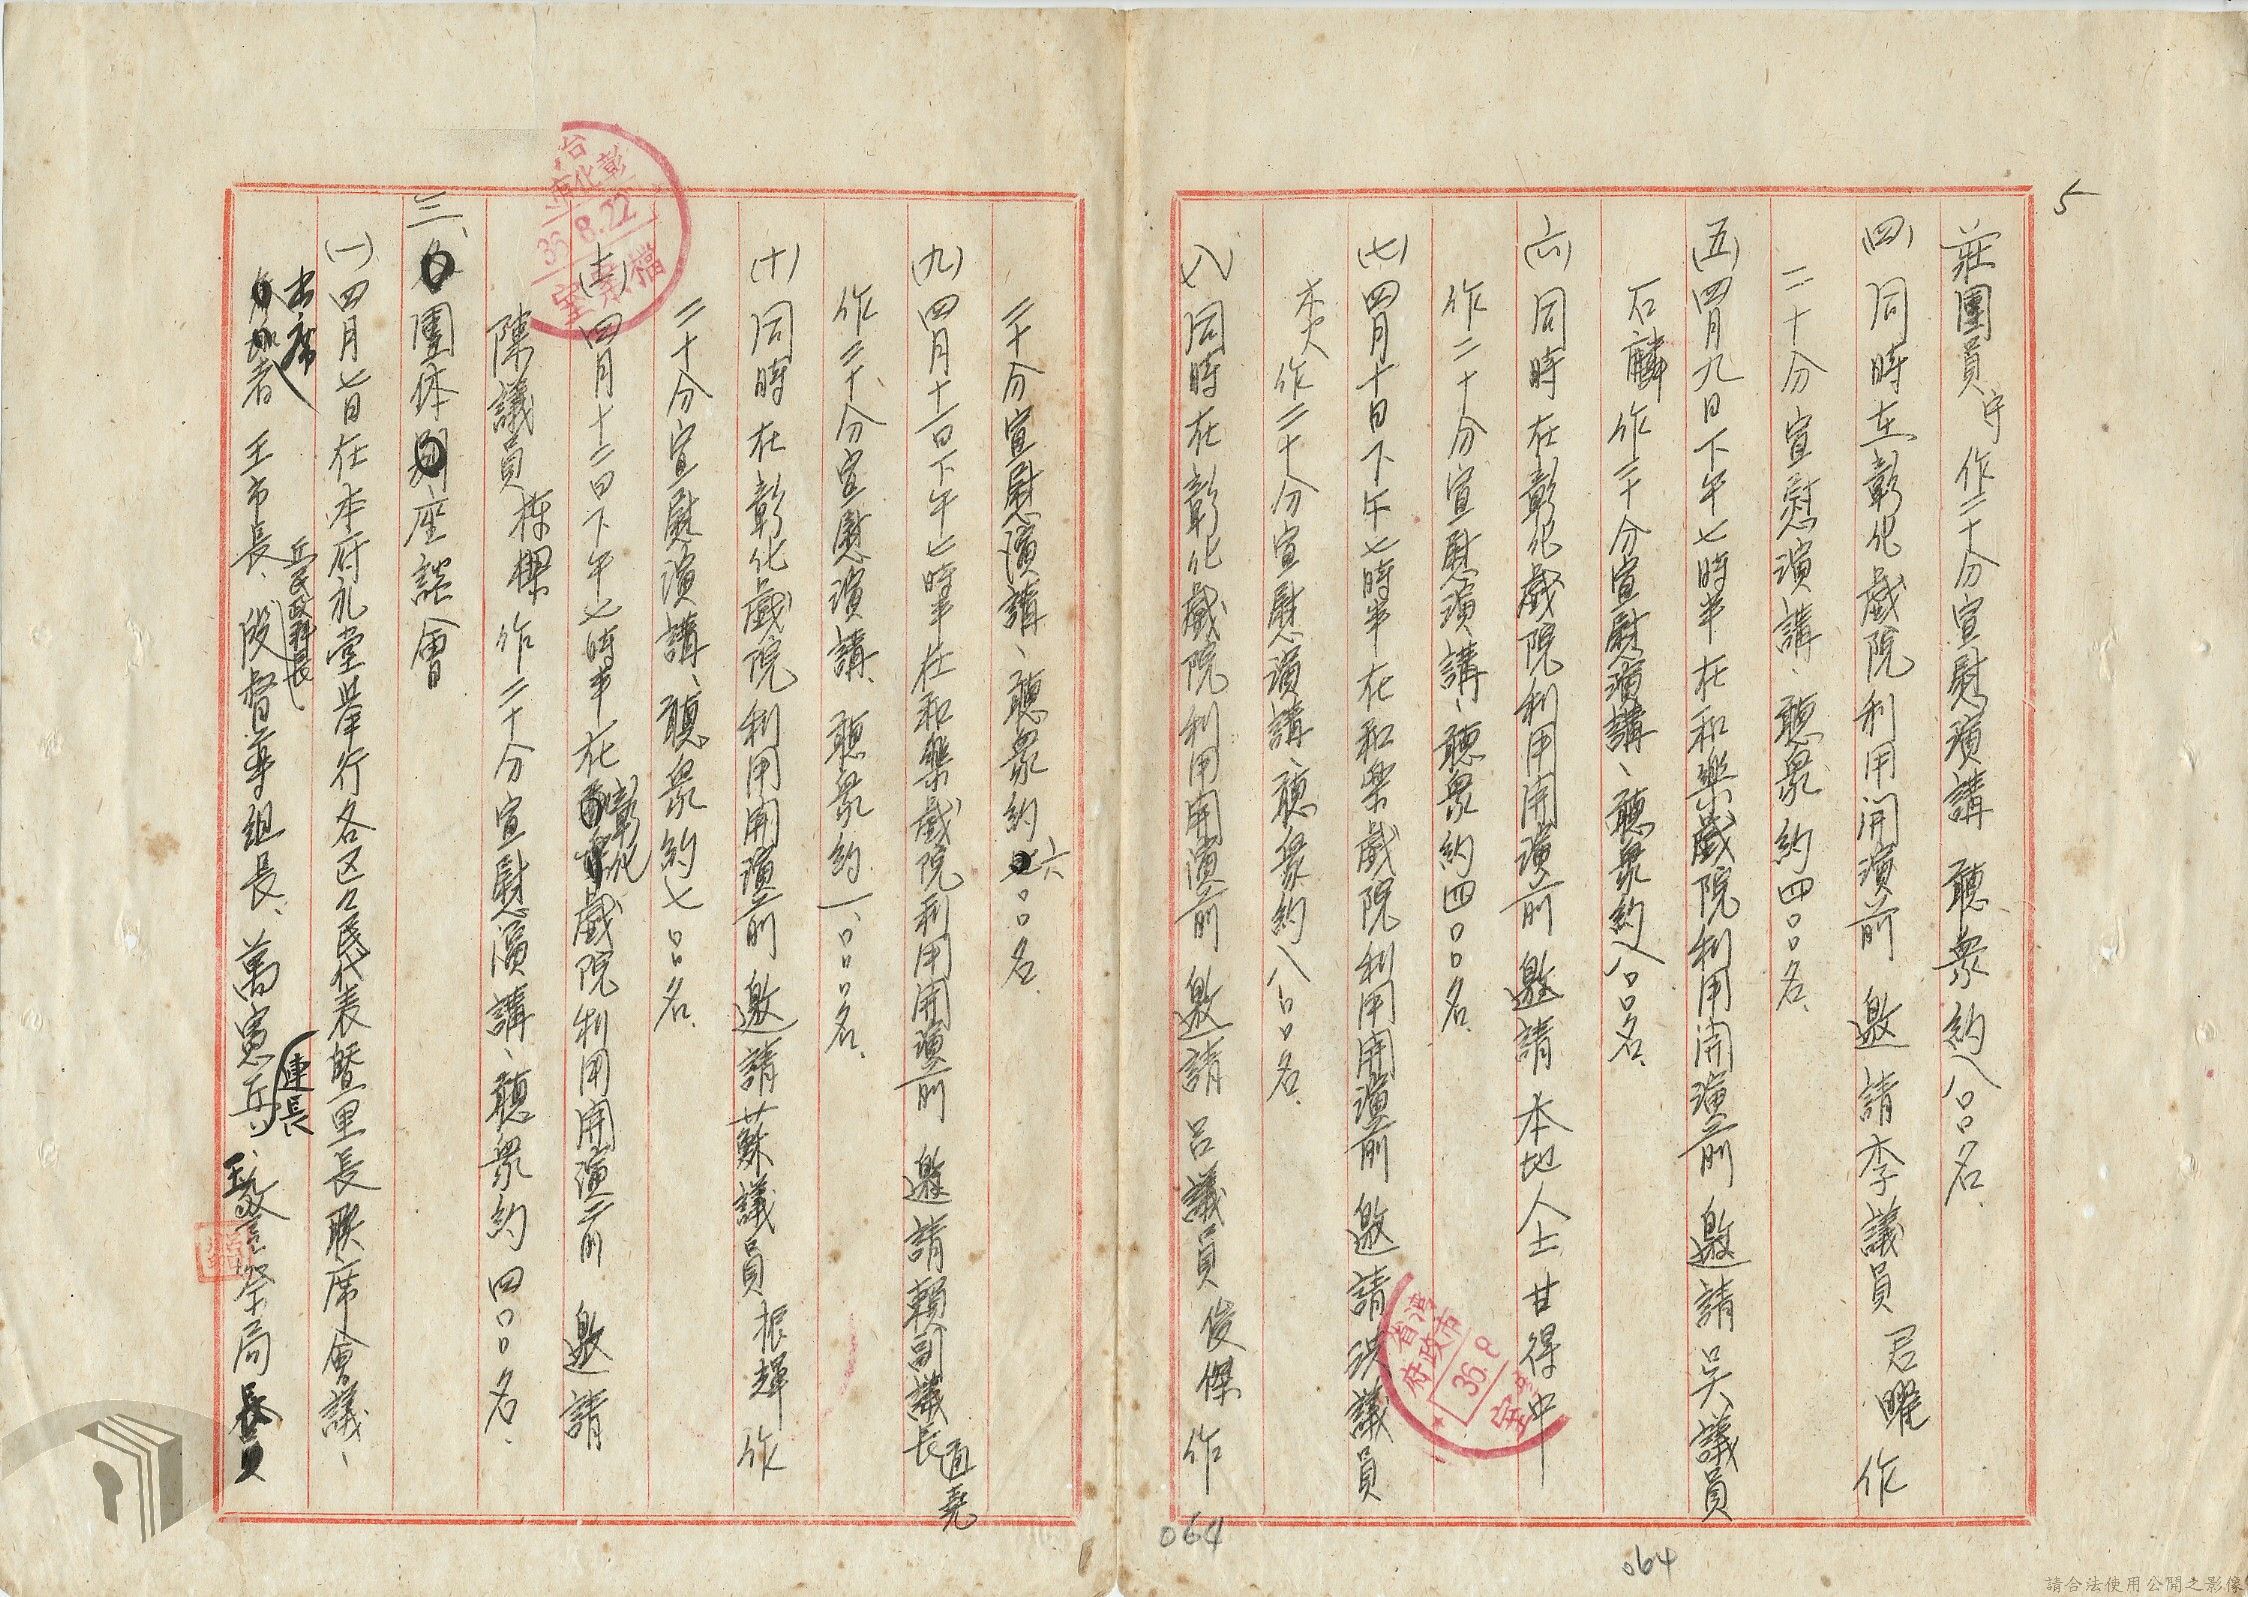 5
莊團員守作二十分宣慰演講聽衆約八〇〇名、
(四)同時在彰化戲院利用開演前邀請李議員君曜作
二十分宣慰演講、聽衆約四〇〇名、
(五)四月九日下午七時半在和樂戲院利用開演前邀請吳議員
石麟作二十分宣慰演講、聽衆約八〇〇名、
(六)同時在彰化戲院利用開演前邀請本地人士甘得中
作二十分宣慰演講、聽衆約四〇〇名、
(七)四月十日下午七時半在和樂戲院利用開演前邀請洪議員
作二十分宣慰演講、聽衆約八〇〇名、
(八)同時在彰化戲院利用開演前邀請呂議員俊傑作
二十分宣慰演講、聽衆約六〇〇名、
(九)四月十一日下午七時半在和樂戲院利用開演前邀請賴副議長通堯
作二十分宣慰演講、聽衆約一、〇〇〇名、
(十)同時在彰化戲院利用開演前邀請蘇議員振輝作
二十分宣慰演講、聽衆約七〇〇名、
(十一)四月十二日下午七時半在彰化戲院利用開演前邀請
陳議員作二十分宣慰演講、聽衆約四〇〇名、
三、團体座談會
(一)四月七日在本府礼堂舉行各区々民代表暨里長聯席會議、
出席者王市長、丘民政科長、段督導組長、萬憲兵連長、王警察局長
彰化
檔案室
36 8.22
省彰市
政府
36.8
室
064
064
請合法使用公開之影像